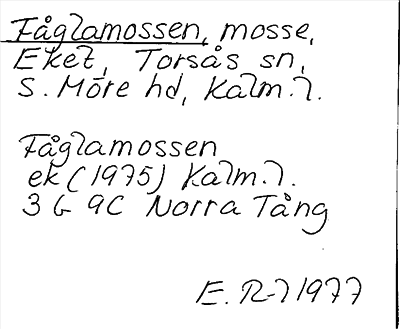 Fåglamossen, mosse,
Eket, Torsås sn,
S. Möre hd, Kalm. l.
Fåglamossen
ek (1975) Kalm. l.
3 G 9C Norra Tång
E. R-l 1977